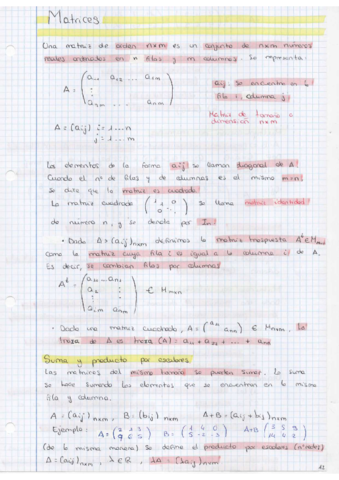 Matrices
Una matriz de orden n×m es un conjunto de n×m números
reales ordenados en n filas y m columnas. Se representa:
A = ( a₁₁ a₁₂ ... a₁m
aij. Se encuentra en la
fila i, columna j.
an1 ... anm )
Matriz de tamaño o
dimensión n×m
A = (aij) i = 1...n
j = 1...m
Los elementos de la forma aii se llaman diagonal de A.
Cuando el nº de filas y de columnas es el mismo m=n
se dice que la matriz es cuadrada.
La matriz cuadrada se llama matriz identidad
de número n, y se denota por In.
• Dada A = (aij)n×m definimos la matriz traspuesta Aᵗ ∈ M
como la matriz cuya fila i es igual a la columna i de A.
Es decir, se cambian filas por columnas
Aᵗ = ( a₁₁ ... an1
a₁₂
a1m anm ) ∈ Mm×n
• Dada una matriz cuadrada, A = ( a₁₁ ann ) ∈ Mn×n, la
traza de A es traza (A) = a₁₁ + a₂₂ + ... + ann
Suma y producto por escalares
Las matrices del mismo tamaño se pueden sumar. La suma
se hace sumando los elementos que se encuentran en la misma
fila y columna.
A = (aij)n×m B = (bij)n×m A+B = (aij + bij)n×m
Ejemplo: A = B = A+B
(de la misma manera) se define el producto por escalares (nº reales)
A = (aij)n×m, λ ∈ R, λA = (λaij)n×m